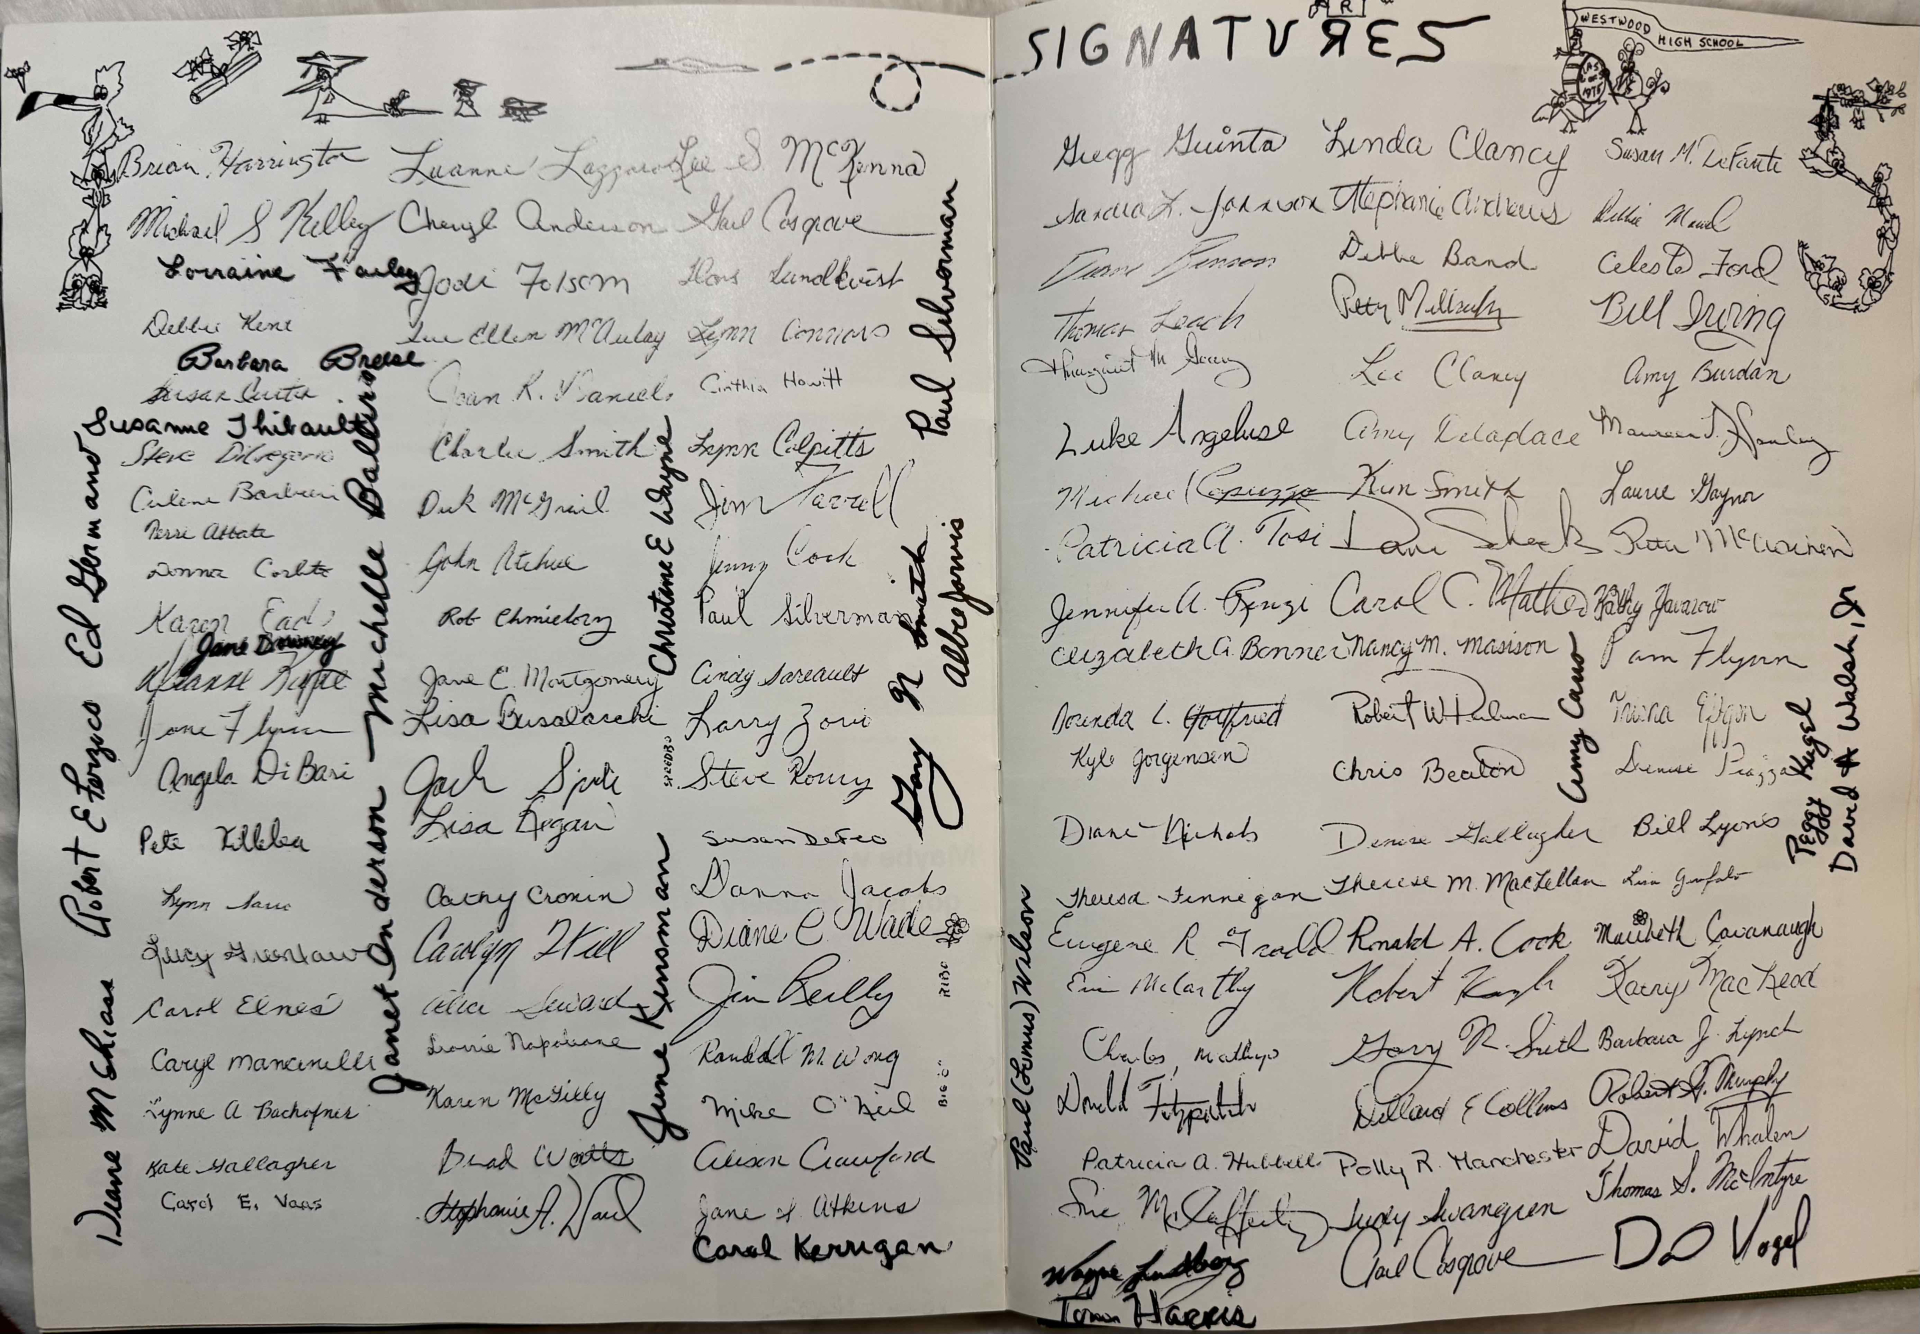 ART
SIGNATURES
WESTWOOD HIGH SCHOOL
CLASS OF 1975
Brian Harrington
Michael S Kelley
Lorraine Farley
Debbie Kent
Barbara Breese
Susan Curtis
Susanne Thibault
Steve DiGregorio
Carlene Barbieri
Terri Abbate
Donna
Karen
Jane Downey
Jane Flynn
Angela DiBari
Pete Killilea
Lynn
Lucy
Carol Elnes
Caryl Mancinelli
Lynne A Bachofner
Kate Gallagher
Carol E. Vaas
Diane McShiass
Robert E Forzese
Ed Gormand
Janet Anderson
Michelle Ballerino
Luanne Lazzaro
Cheryl Anderson
Jodi Folsom
Sue Ellen McAulay
Joan K. Daniels
Charlie Smith
Dick McGrail
John Ritchie
Rob Chmielorz
Jane E. Montgomery
Lisa Busalacchi
Jack
Lisa Regan
Cathy Cronin
Carolyn Hill
Alice Seward
Lorrie Napoleone
Karen McGilly
Brad Watts
Stephanie A. Ward
Christine E Wayne
June Kinsman
SPEEDBO
Lee S. McKenna
Gail Cosgrove
Doris Lundkvist
Lynn Connors
Cinthia Howitt
Lynn Colpitts
Jim Farrell
Jenny Cook
Paul Silverman
Cindy Sareault
Larry Zovi
Steve Koury
Susan DeFeo
Danna Jacobs
Diane C. Wade
Jim Reilly
Randall M. Wong
Mike O'Neil
Alison Crawford
Jane H. Atkins
Carol Kerrigan
Paul Silvoman
Gay N Smith
Albie Jarvis
RIBO
BIG "O"
Gregg Guinta
Sandra L. Johnson
Diane Benson
Thomas Leach
Margaret M Geary
Luke Angeluse
Michael Capuzzo
Patricia A. Tosi
Jennifer A. Renzi
Elizabeth A. Bonner
Dorinda L. Gottfried
Kyle Jorgensen
Diane Nichols
Theresa Finnegan
Eugene R. Trodd
Erin McCarthy
Charles Matheys
Donald Fitzpatrick
Patricia A. Hubbell
Sue McCafferty
Wayne Lundborg
Tom Harris
Paul (Lomus) Wilson
Linda Clancy
Stephanie Andrews
Debbe Band
Patty
Lee Clancy
Amy Delaplace
Kim Smith
Dave
Carol C. Mather
Nancy M. Masison
Robert W. Perlman
Chris Beaton
Denise Gallagher
Therese M. MacLellan
Ronald A. Cook
Robert
Gary R. Smith
Dillard E Collins
Polly R. Manchester
Judy Swangren
Gail Cosgrove
Amy Caro
Susan M. DeFante
Debbie
Celeste Ford
Bill Irving
Amy Burdan
Maureen T. Hanley
Laurie Gaynor
Peter
Kathy Yavarow
Pam Flynn
Trisha
Denise Piazza
Bill Lyons
Lisa Garofalo
Maribeth Cavanaugh
Kathy MacLeod
Barbara J. Lynch
Robert G. Murphy
David Whalen
Thomas S. McIntyre
DD Vogel
Peggy Kugel
David A Walsh, Jr